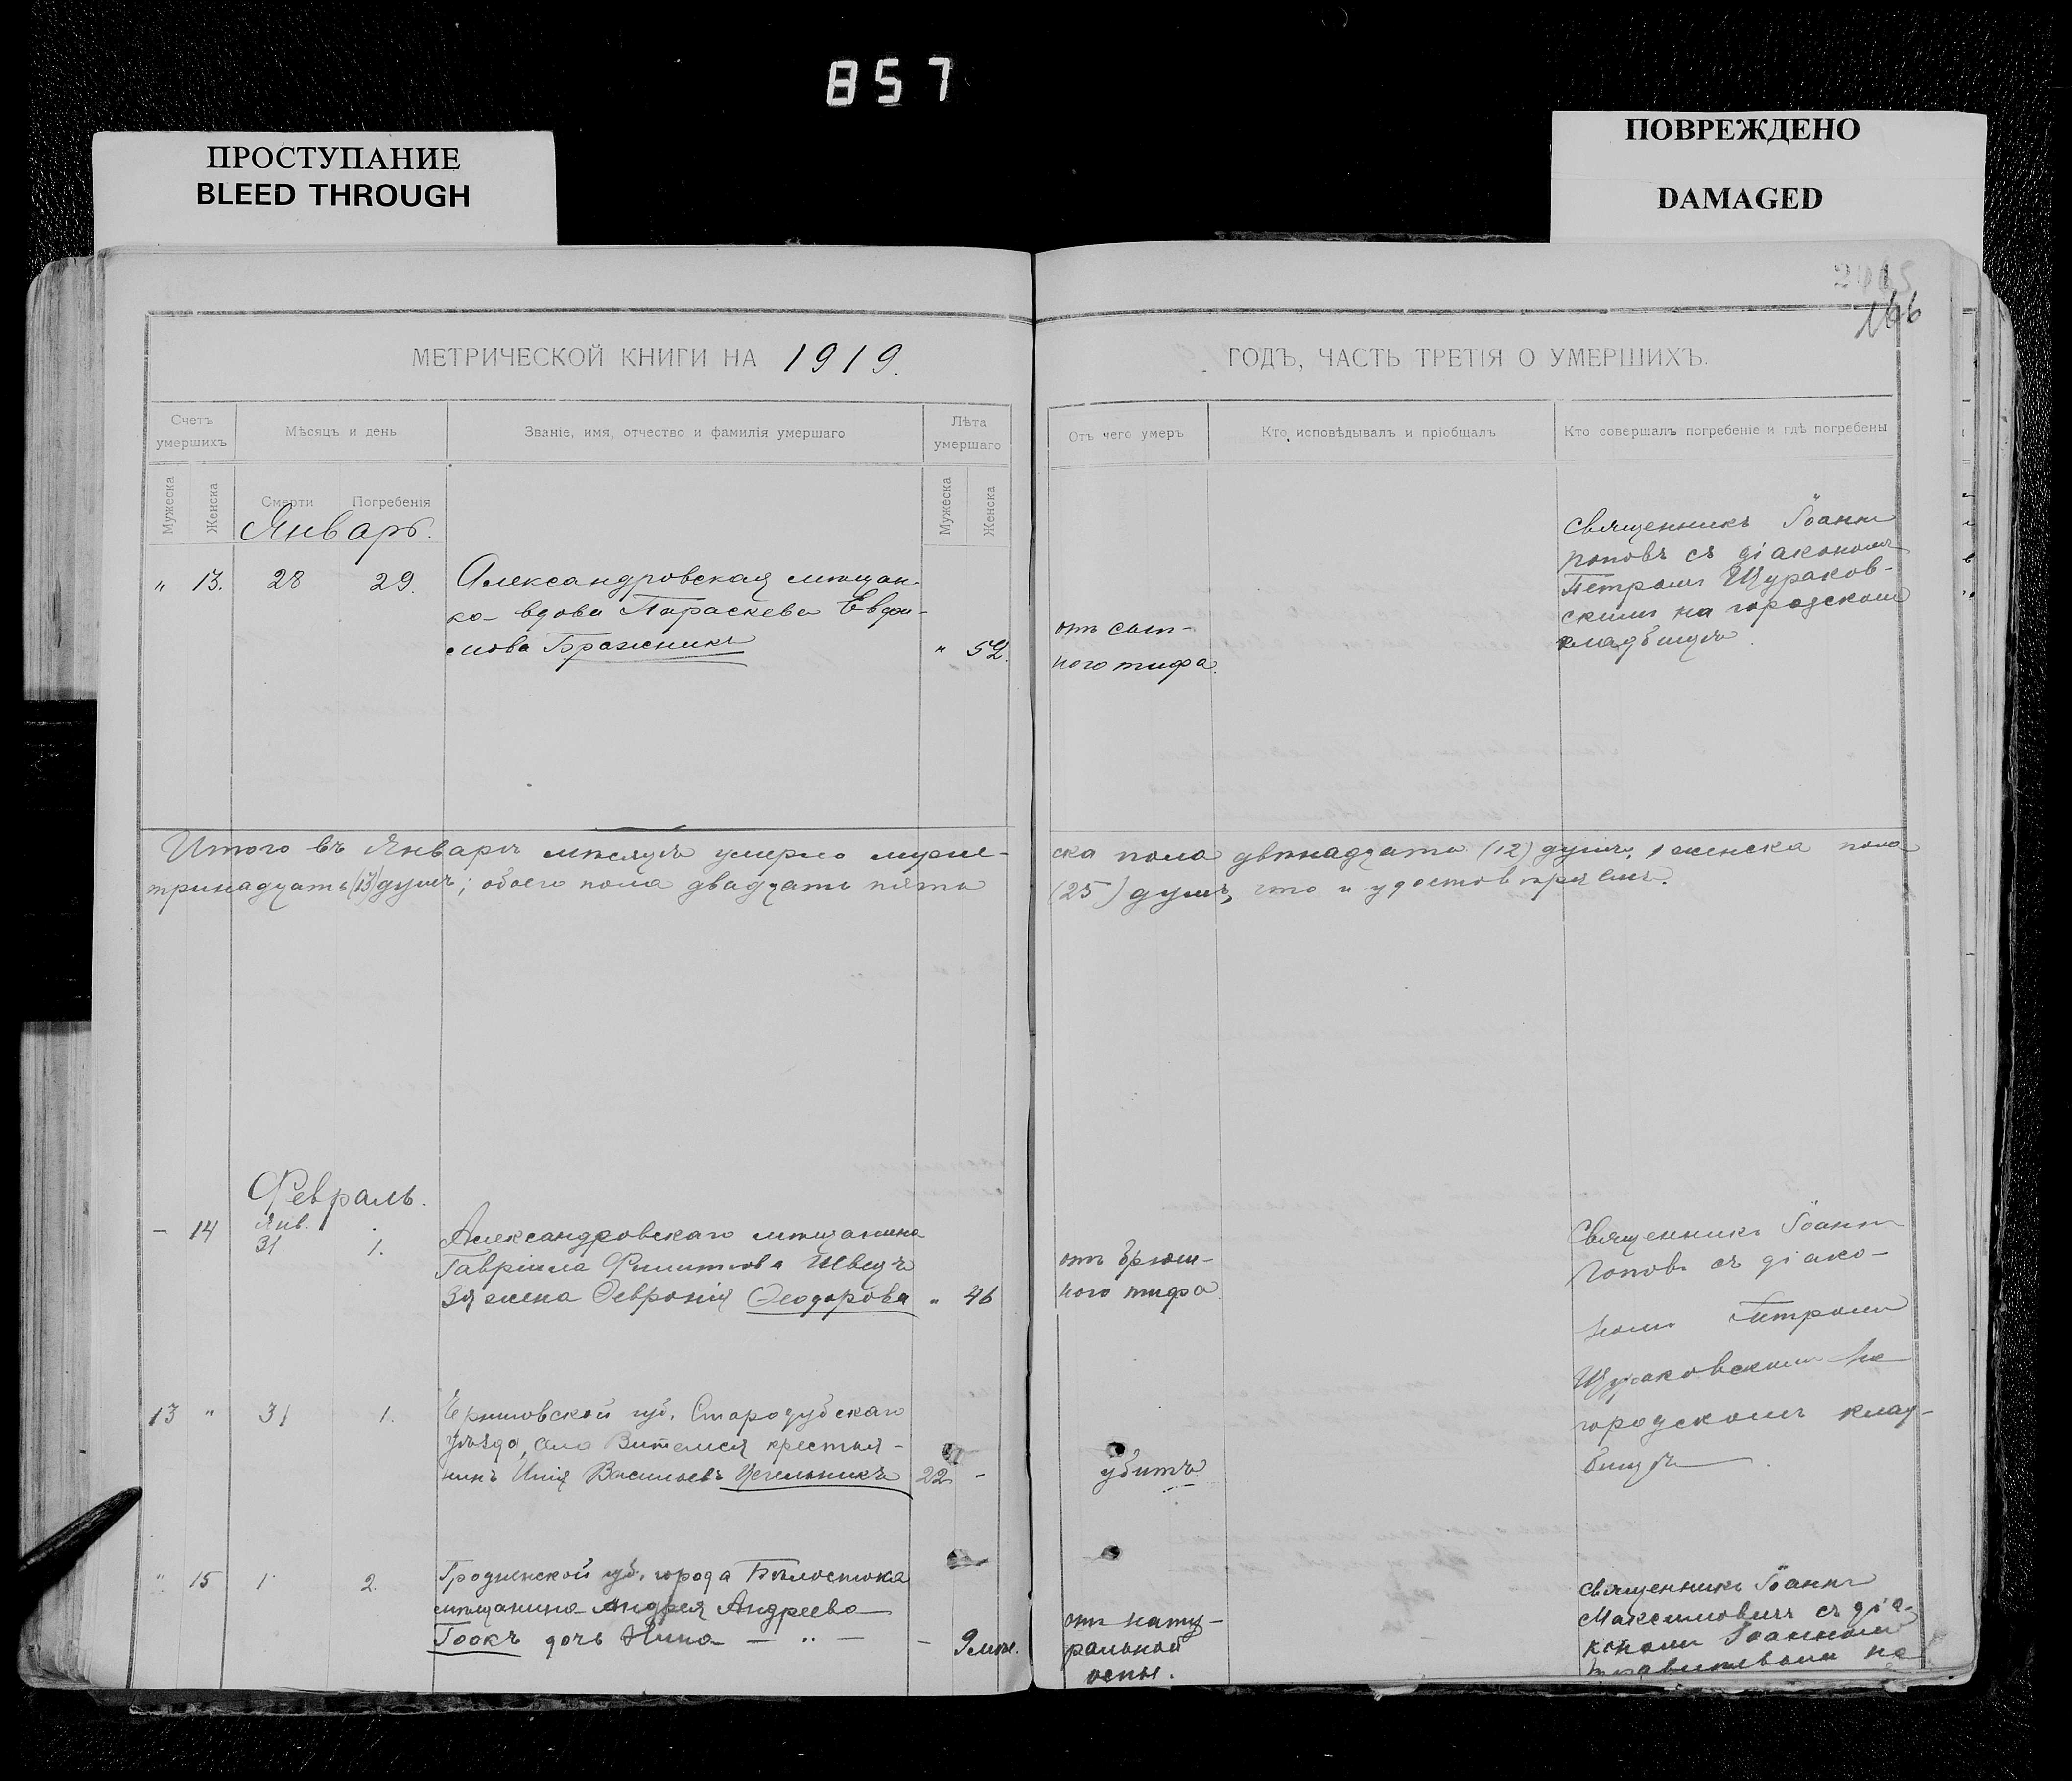 857
ПРОСТУПАНИЕ
BLEED THROUGH
ПОВРЕЖДЕНО
DAMAGED
166
МЕТРИЧЕСКОЙ КНИГИ НА 1919.
ГОДЪ, ЧАСТЬ ТРЕТІЯ О УМЕРШИХЪ.
Счетъ умершихъ
Мѣсяцъ и день
Званіе, имя, отчество и фамилія умершаго
Лѣта умершаго
Отъ чего умеръ
Кто исповѣдывалъ и пріобщалъ
Кто совершалъ погребеніе и гдѣ погребены
Мужеска
Женска
Смерти
Погребенія
Мужеска
Женска
Январь.
" 13. 28 29. Александровская мѣщан-
ка вдова Параскева Евфи-
мова Бражникъ " 52.
отъ сып-
ного тифа.
Священникъ Іоаннъ
Поповъ съ діакономъ
Петромъ Щураков-
скимъ на городскомъ
кладбищѣ.
Итого въ Январѣ мѣсяцѣ умерло муже-
ска пола двѣнадцать (12) душъ, женска пола
тринадцать (13) душъ; обоего пола двадцать пять
(25) душъ, что и удостовѣряемъ.
Февраль.
– 14 Янв. 31 1. Александровскаго мѣщанина
Гавріила Филиппова Швец
жена Февронія Ѳеодорова " 46
отъ брюш-
ного тифа
Священникъ Іоаннъ
Поповъ съ діако-
номъ Петромъ
Щураковскимъ на
городскомъ клад-
бищѣ.
13 " 31 1. Черниговской губ. Стародубскаго
уѣзда, села Витемля крестья-
нинъ Илія Васильевъ Цегельникъ 22 -
убитъ.
" 15 1 2. Гродненской губ. города Бѣлостока
мѣщанина Андрея Андреева
Гоокъ дочь Нина — " — – 9 мѣс.
отъ нату-
ральной
оспы.
Священникъ Іоаннъ
Максимовичъ съ діа-
кономъ Іоанномъ
на